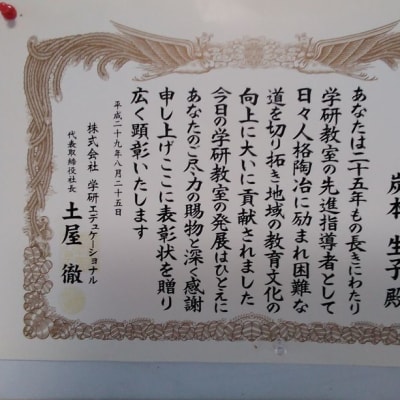 炭本 生子 殿
あなたは二十五年もの長きにわたり
学研教室の先進指導者として
日々人格陶冶に励まれ困難な
道を切り拓き地域の教育文化の
向上に大いに貢献されました
今日の学研教室の発展はひとえに
あなたのご尽力の賜物と深く感謝
申し上げここに表彰状を贈り
広く顕彰いたします
平成二十九年八月二十五日
株式会社 学研エデュケーショナル
代表取締役社長 土屋 徹